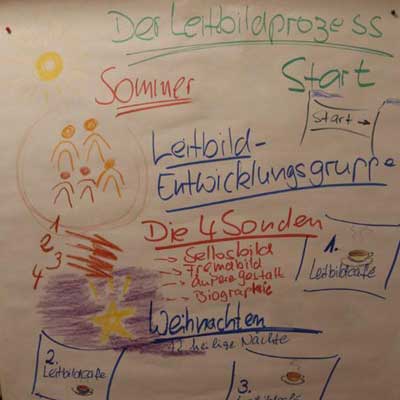 Der Leitbildprozess
Sommer
Start
Start
Leitbild-
Entwicklungsgruppe
Die 4 Sonden
1
2
3
4
Selbstbild
Fremdbild
äußere gestalt
Biographie
1.
Leitbildcafe
Weihnachten
12 heilige Nächte
2.
Leitbildcafe
3.
Leitbildcafe